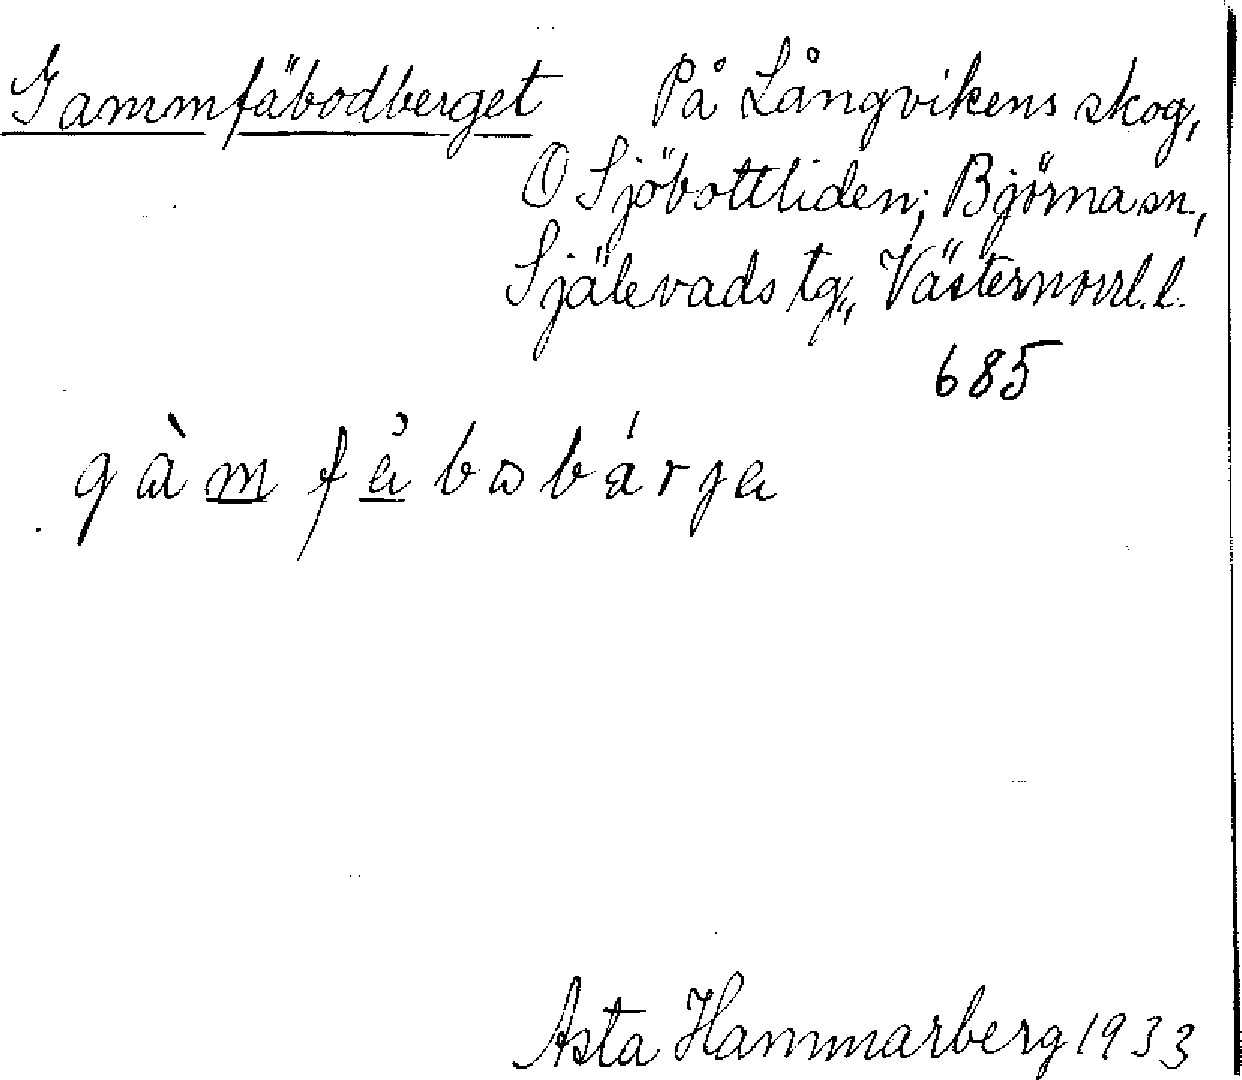 Gammfäbodberget På Långvikens skog,
O Sjöbottliden, Björna sn,
Själevads tg., Västernorrl. l.
685
gàm fäbobárja
Asta Hammarberg 1933